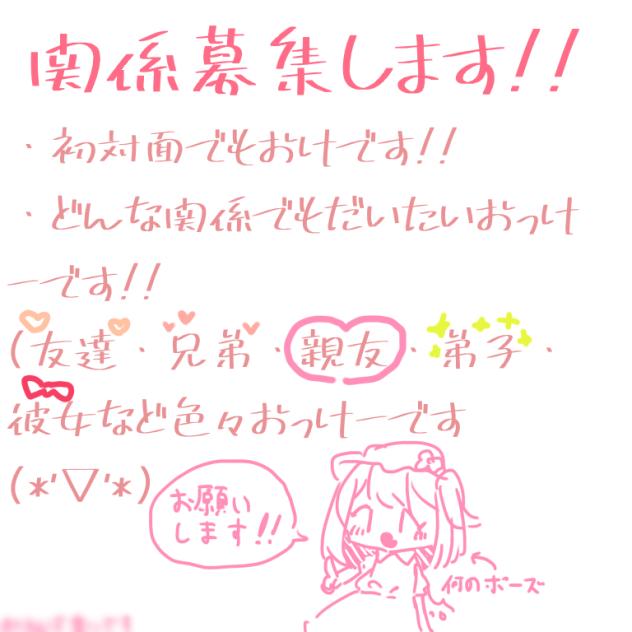 関係募集します!!
・初対面でもおけです!!
・どんな関係でもだいたいおっけ
ーです!!
(友達・兄弟・親友・弟子・
彼女など色々おっけーです
(*'▽'*)
お願い
します!!
何のポーズ